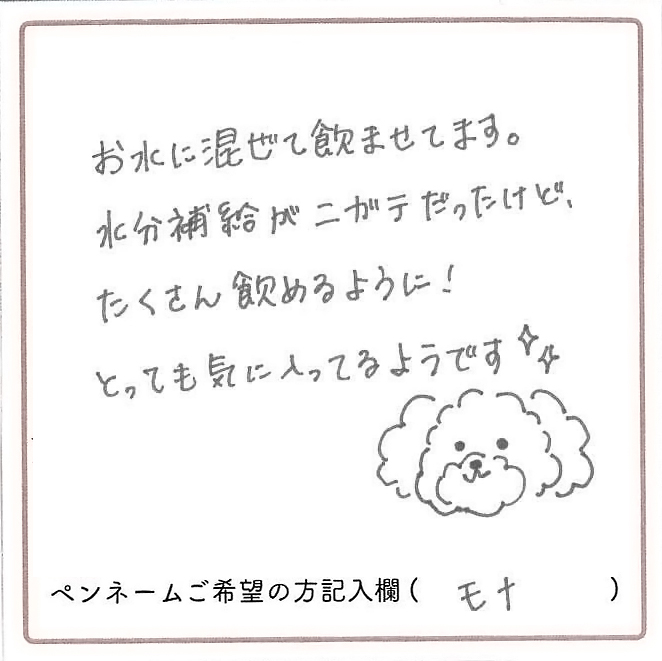 お水に混ぜて飲ませてます。
水分補給がニガテだったけど、
たくさん飲めるように!
とっても気に入ってるようです
ペンネームご希望の方記入欄( モナ )